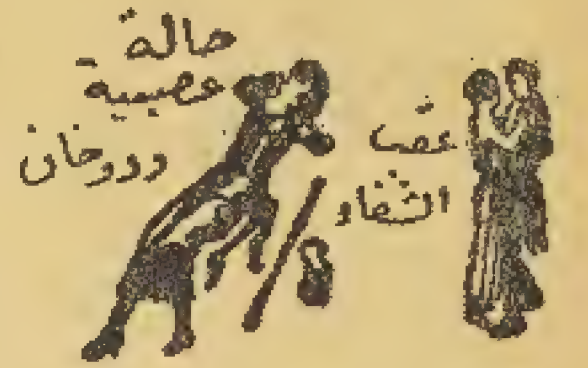 حالة
عصبية
ودوخان
عض
الشفاه